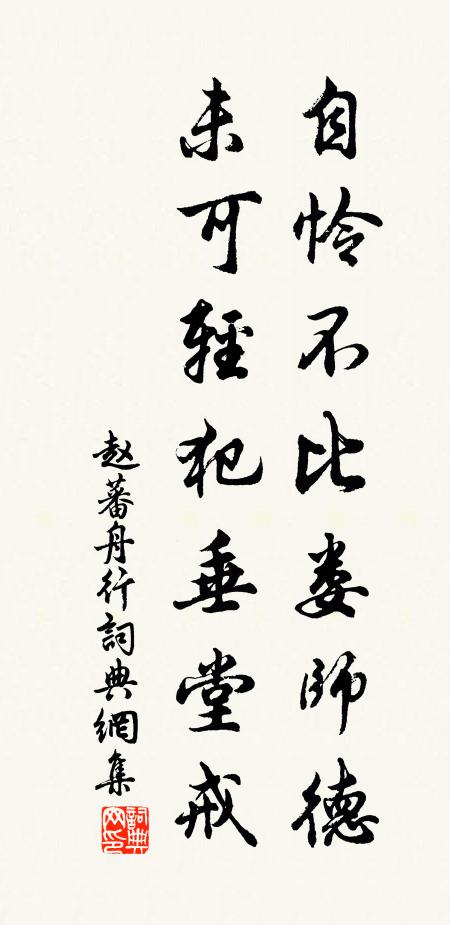 自怜不比娄師德
未可輕犯垂堂戒
赵蕃舟行詞典網集
詞典網印